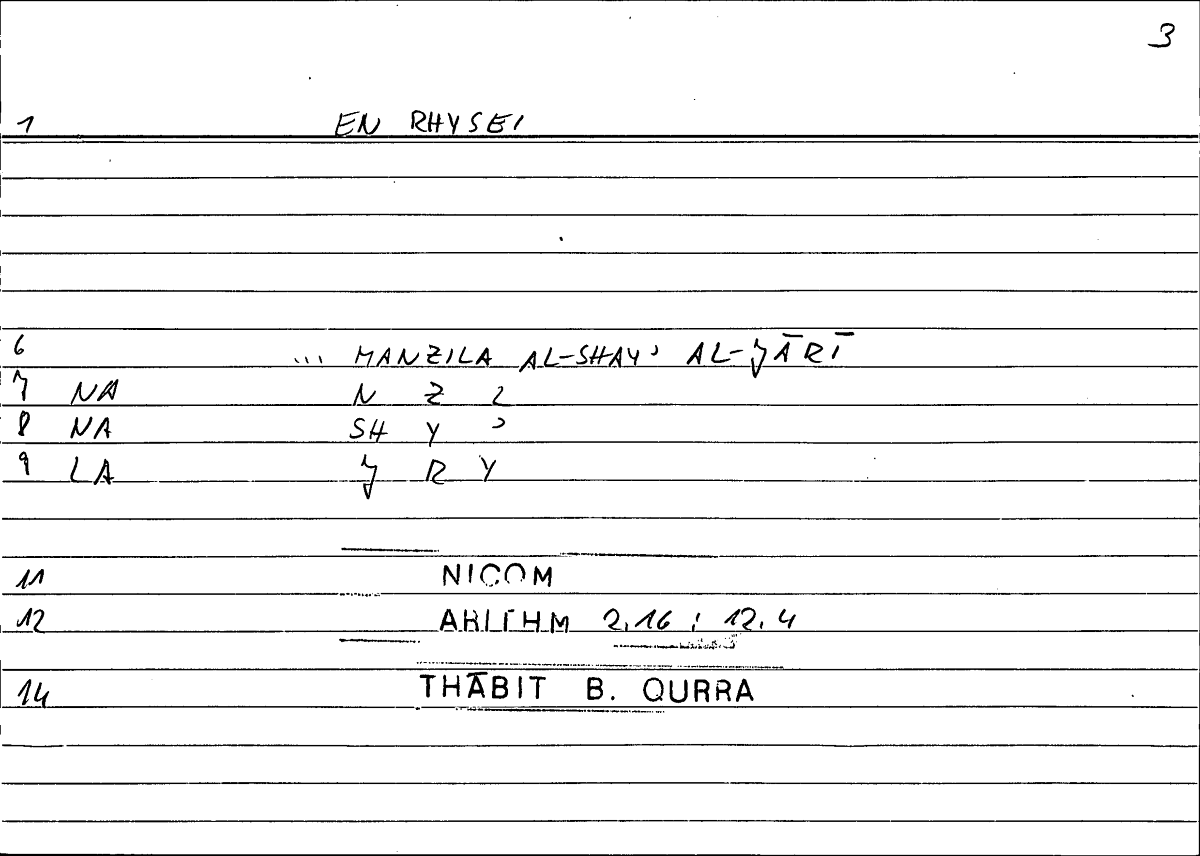 3
1 EN RHYSEI
6 ... MANZILA AL-SHAYʾ AL-JĀRĪ
7 NA N Z L
8 NA SH Y ʾ
9 LA J R Y
11 NICOM
12 ARITHM 2.16 ; 12.4
14 THĀBIT B. QURRA